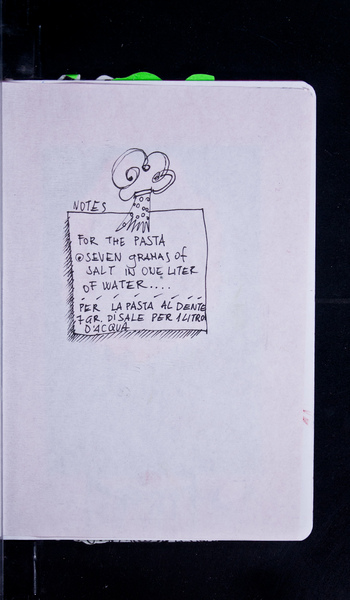 NOTES
FOR THE PASTA
SEVEN gramas of
SALT IN ONE LITER
OF WATER....
PER LA PASTA AL DENTE
7 GR. DI SALE PER 1 LITRO
D'ACQUA